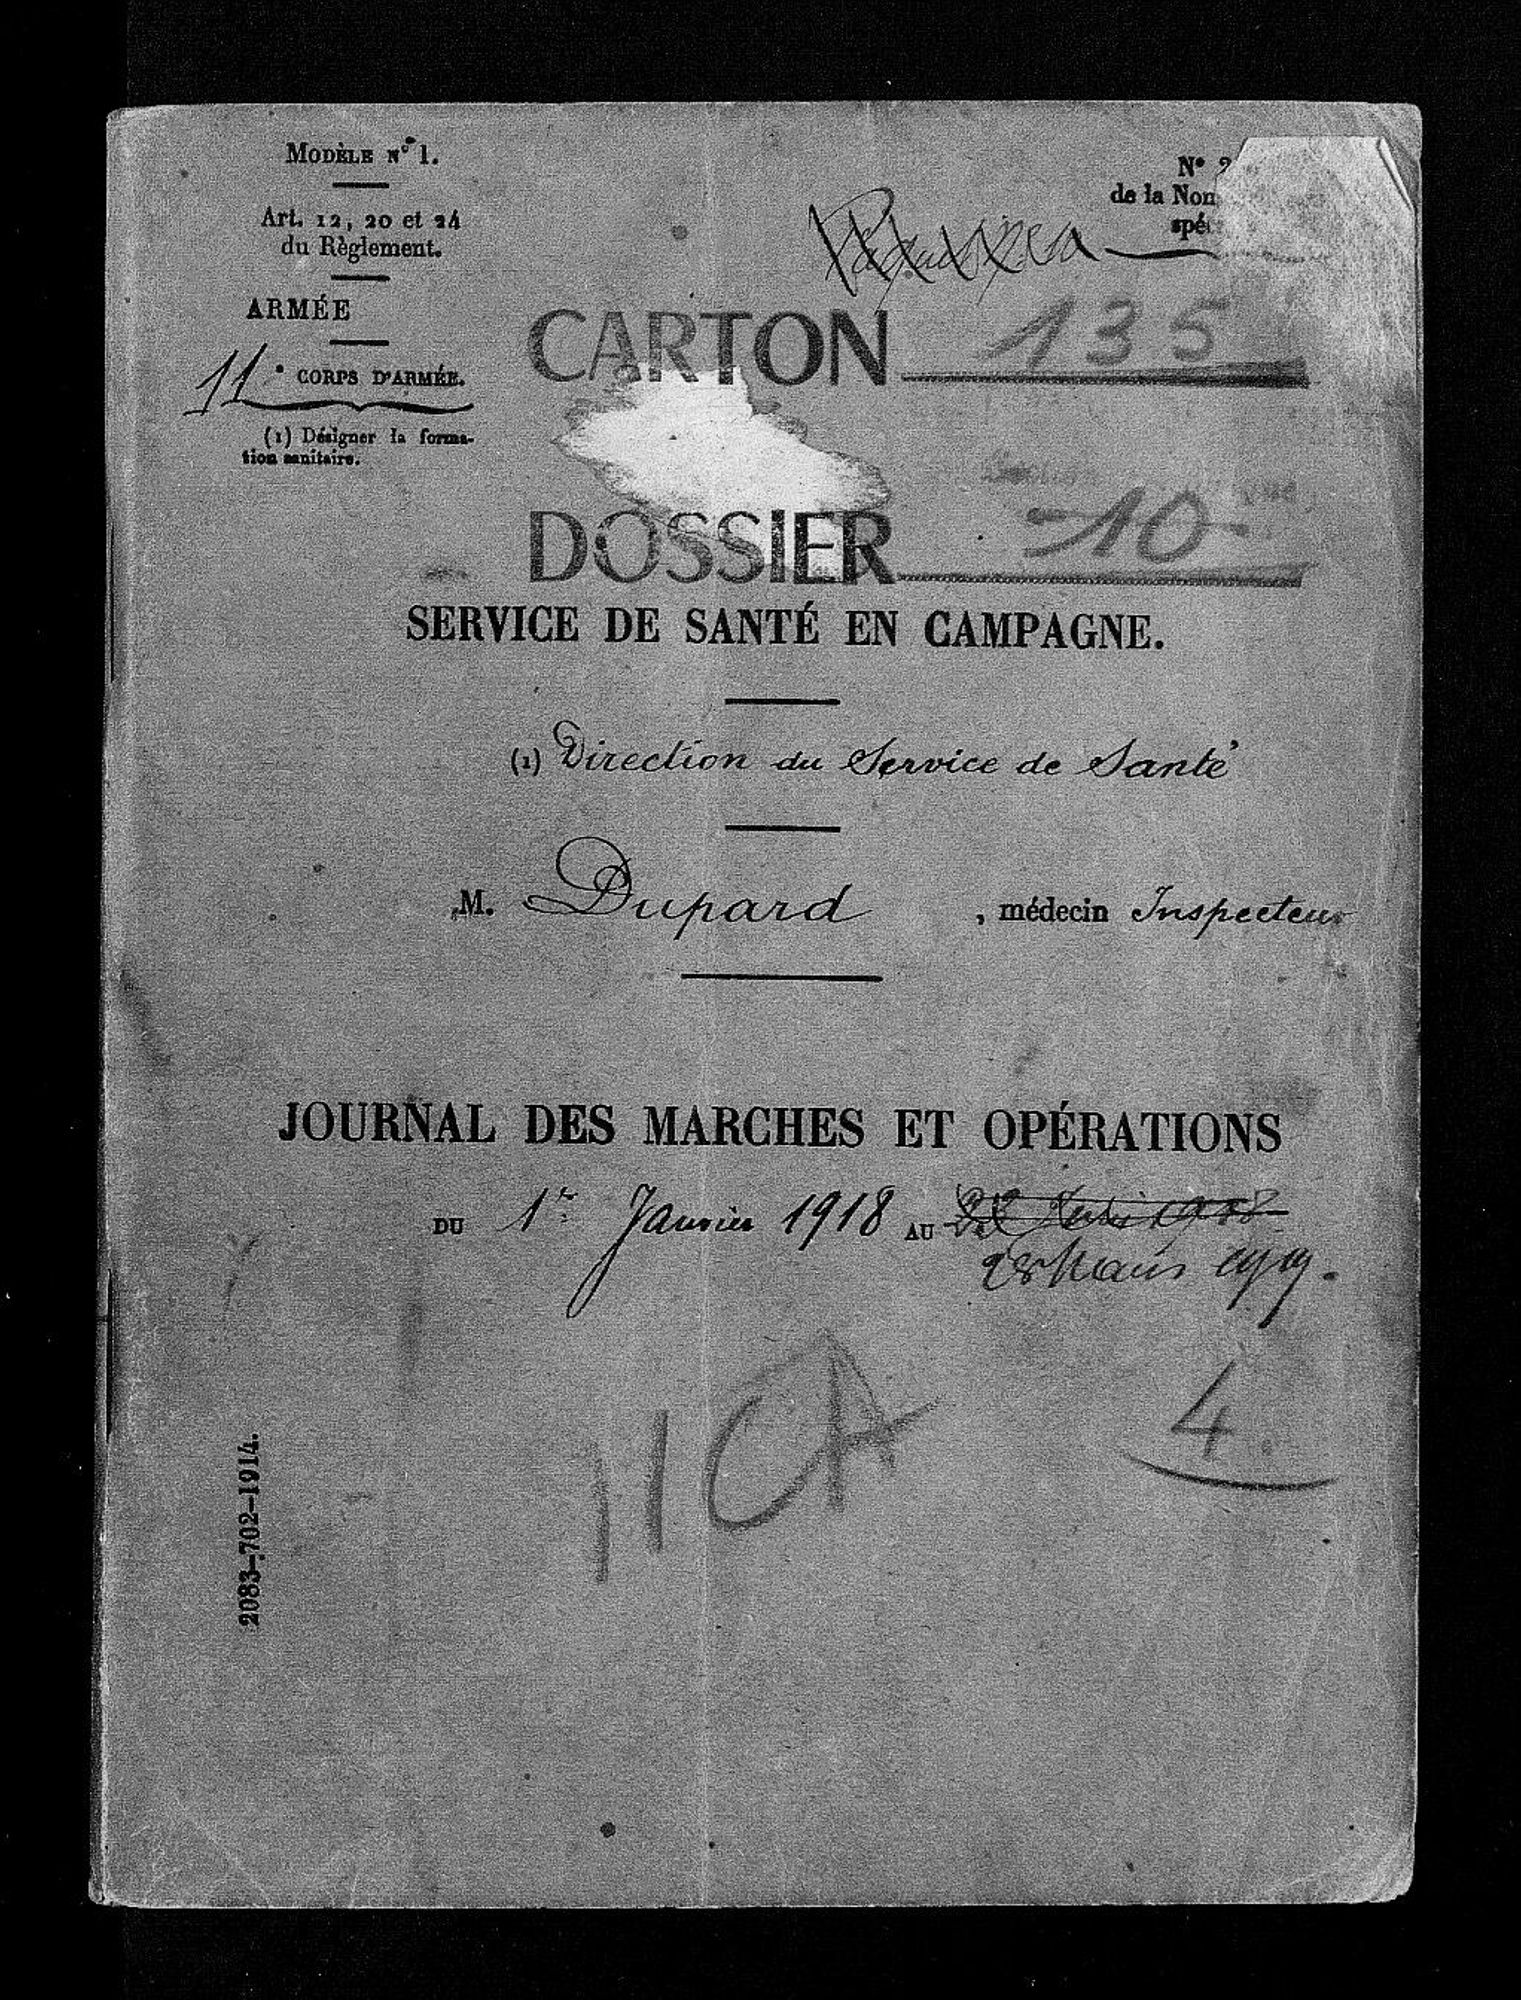 MODÈLE N° 1.
Art. 12, 20 et 24
du Règlement.
ARMÉE
11e CORPS D'ARMÉE.
(1) Désigner la forma-
tion sanitaire.
N°
de la Nom
spé
CARTON 135
DOSSIER 10
SERVICE DE SANTÉ EN CAMPAGNE.
(1) Direction du Service de Santé
M. Dupard, médecin Inspecteur
JOURNAL DES MARCHES ET OPÉRATIONS
DU 1er Janvier 1918 AU
28 Mars 1919.
11 CA
4
2083-702-1914.